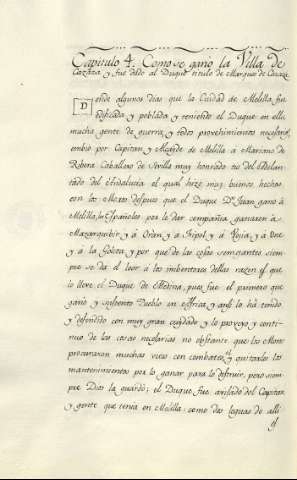 Capitulo 4. Como se gano la Villa de
Cazaza y fue dado al Duque titulo de Marques de Cazaza
Dende algunos dias que la Ciudad de Melilla fue
edificada y poblada y teniendo el Duque en ella
mucha gente de guerra, y todos proveimientos necesarios,
embio por Capitan y Alcayde de Melilla a Mariano de
Ribera Caballero de Sevilla muy honrado tio del Adelan-
tado del Andalucia el qual hizo muy buenos hechos
con los Moros despues que el Duque Dn Juan gano á
Melilla, los Españoles por le der compañia ganaron à
Mazarquibir, y á Oran, y á Tripol, y á Bujia, y à One
y á la Goleta, y por que de las cosas semejantes siem-
pre se da el loor á los imbentores dellas razon es que
lo lleve el Duque de Medina, pues fue el primero que
gano y sustento Pueblo en Africa, y ansi lo ha tenido
y defendido con muy gran cuidado y lo proveyo y conti-
nuo de las cosas necesarias no obstante que los Moros
procuraron muchas veces con combates, y quitarles los
mantenimientos por lo ganar para lo destruir, pero siem-
pre Dios la guardó; el Duque fue avisado del Capitan
y gente que tenia en Melilla, como dos leguas de alli